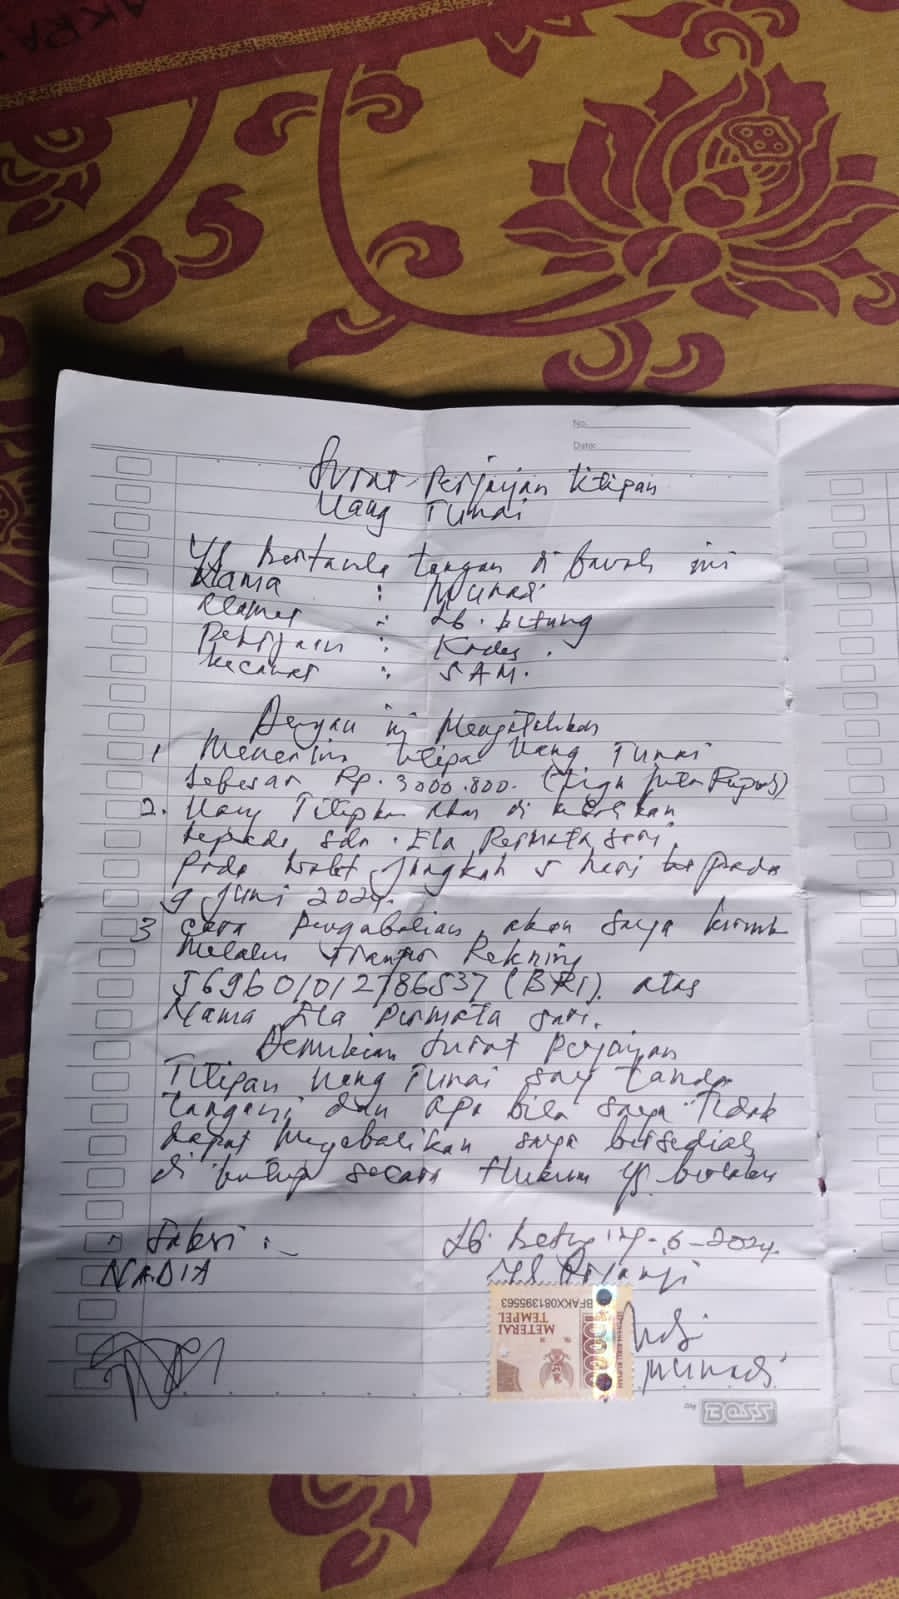 No.
Date:
Surat Perjanjian titipan
Uang Tunai
Yg bertanda tangan di bawah ini
Nama : Munadi
Alamat : Lb. betung
Pekerjaan : Kades.
Kecamat : SAM.
Dengan ini Mengatakan
1 Menerima titipan Uang Tunai
Sebesar Rp. 3000.800. (Tiga juta Rupiah)
2. Uang Titipkan akan di
kepada sdr. Ela Permata sari
pada waktu jangkah 5 hari
9 Juni 2024.
3 cara pengabalian akan saya kirimk
Melalui Rekning
569601012786537 (BRI). atas
Nama Ela Permata sari.
Demikian surat perjanjian
Titipan Uang Tunai saya tanda
tangani dan apa bila saya tidak
dapat saya bersediah
di secara Hukum yg berlaku
Saksi :
NADIA
Lb. -6-2024.
METERAI
TEMPEL
10000
BFAKX081395563
Munadi
BOSS